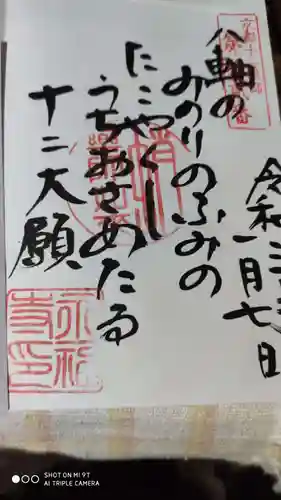 八軸の
みのりのふみの
たこやくし
うちおさめたる
十二大願
令和三年
一月七日
永福寺印
SHOT ON MI 9T
AI TRIPLE CAMERA